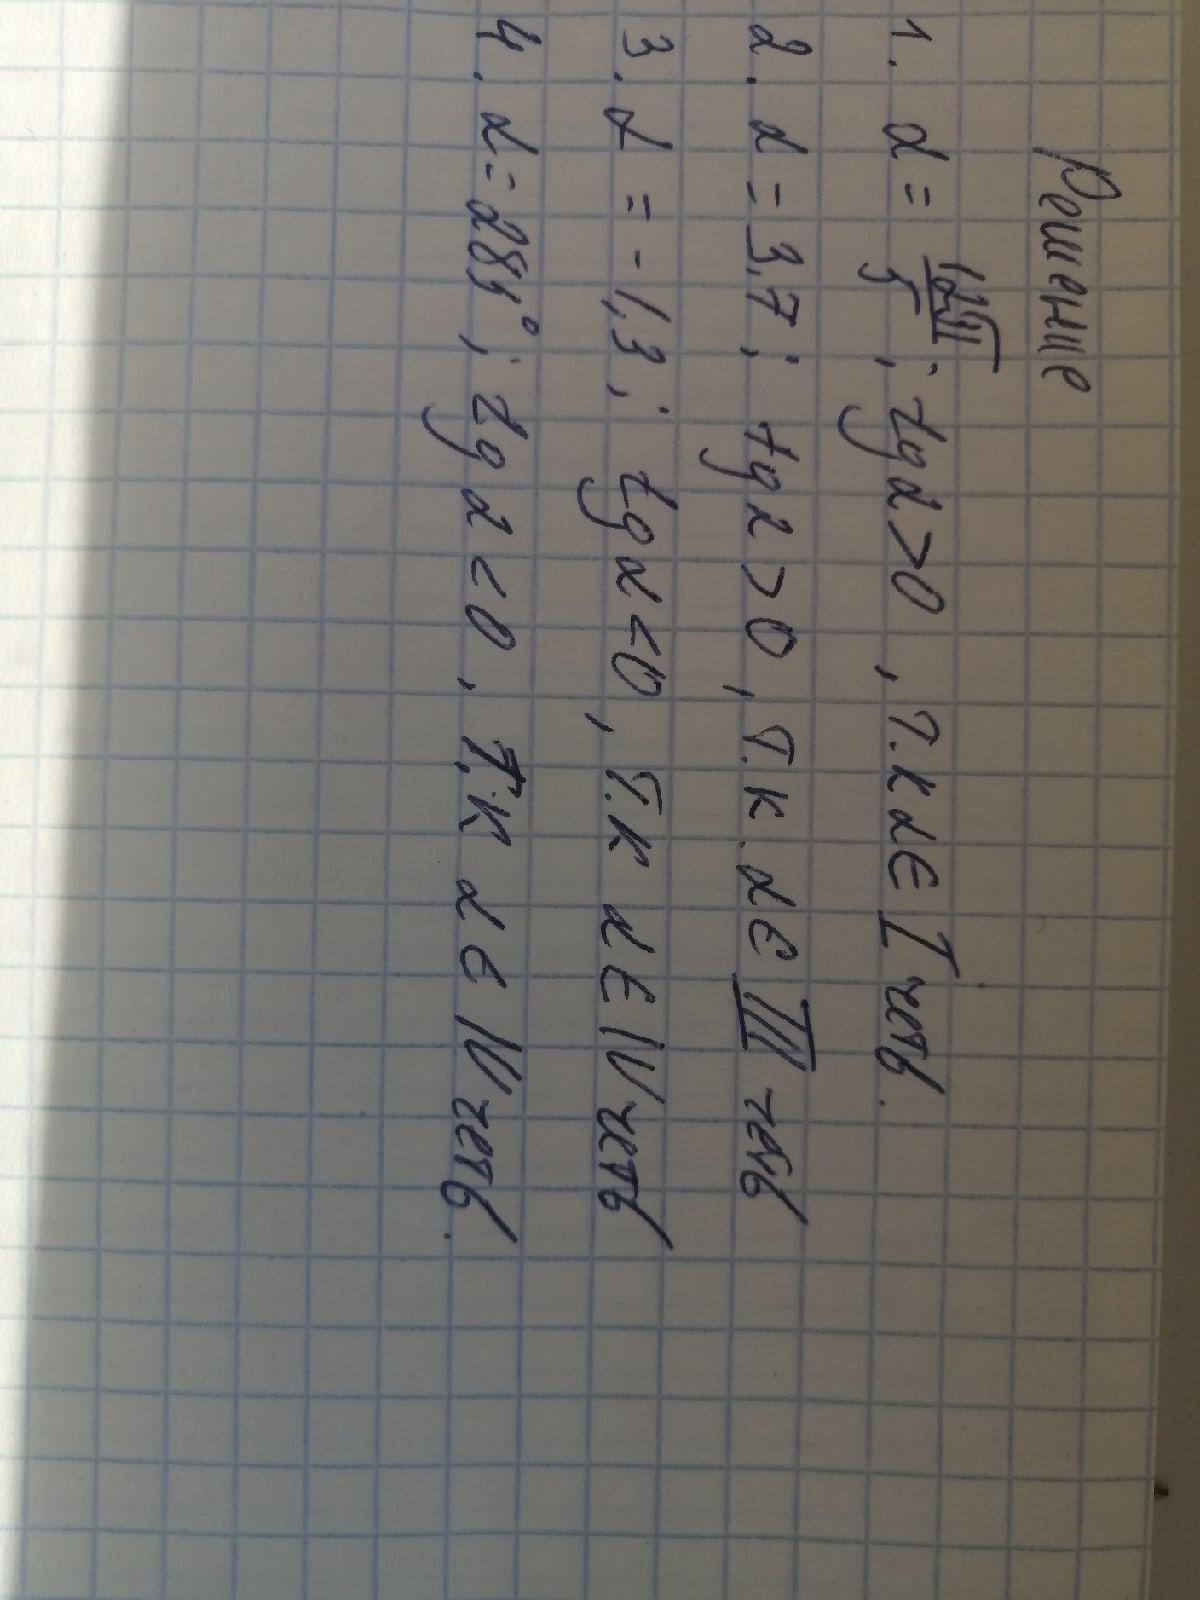 Решение
1. α = 12π/5 ; tg α > 0 , т.к α ∈ I четв.
2. α = 3,7 ; tg α > 0 , т.к. α ∈ III четв
3. α = - 1,3 ; tg α < 0 , т.к α ∈ IV четв
4. α = 285° ; tg α < 0 , т.к α ∈ IV четв.